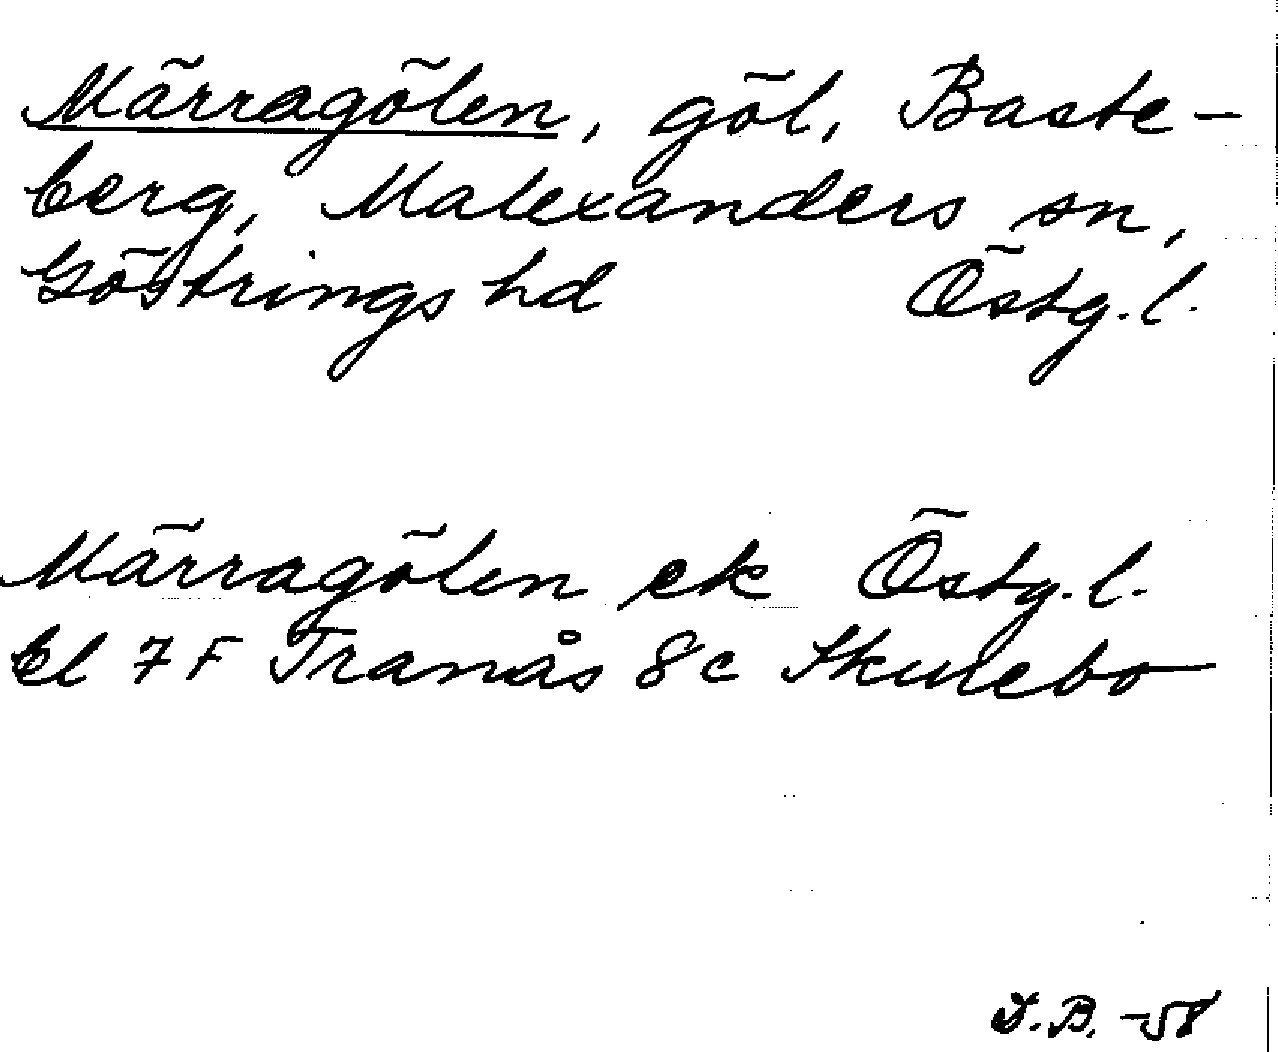 Märragölen, göl, Baste-
berg, Malexanders sn,
Göstrings hd Östg.l.
Märragölen ek Östg.l.
bl 7 F Tranås 8c Skulebo
I.B. -58